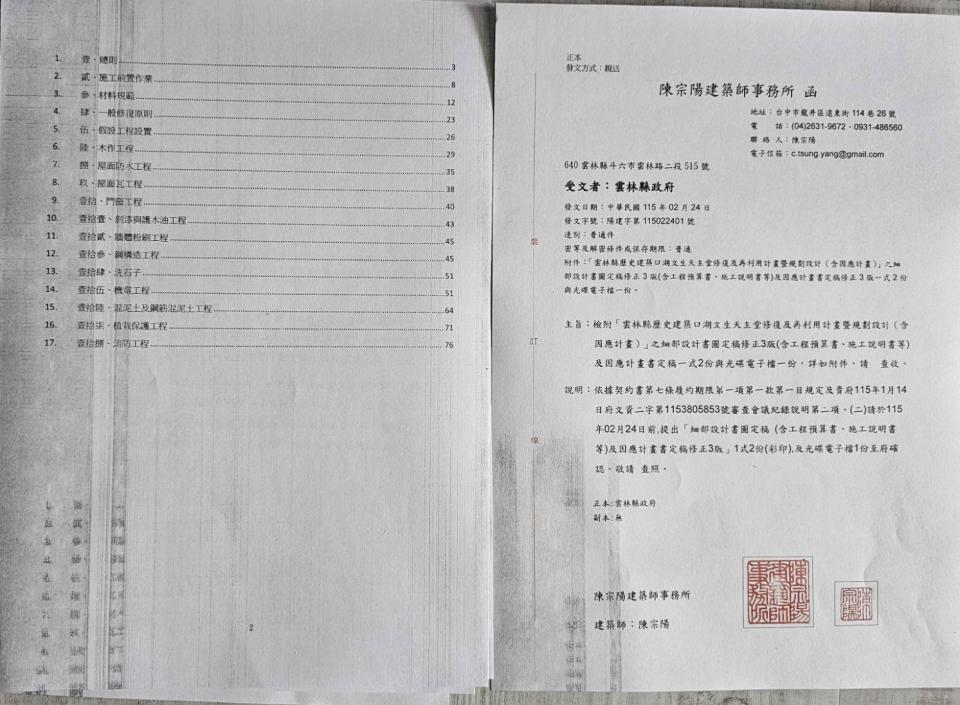 1. 壹、總則 3
2. 貳、施工前置作業 8
3. 參、材料規範 12
4. 肆、一般修復原則 23
5. 伍、假設工程設置 26
6. 陸、木作工程 29
7. 捌、屋面防水工程 35
8. 玖、屋面瓦工程 38
9. 壹拾、門窗工程 40
10. 壹拾壹、剝漆與護木油工程 43
11. 壹拾貳、牆體粉刷工程 45
12. 壹拾參、鋼構造工程 45
13. 壹拾肆、洗石子 51
14. 壹拾伍、機電工程 51
15. 壹拾陸、混泥土及鋼筋混泥土工程 64
16. 壹拾柒、植栽保護工程 71
17. 壹拾捌、消防工程 76
2
正本
發文方式：親送
陳宗陽建築師事務所 函
地址：台中市龍井區遠東街 114 巷 26 號
電 話：(04)2631-9672、0931-486560
聯 絡 人：陳宗陽
電子信箱：c.tsung.yang@gmail.com
640 雲林縣斗六市雲林路二段 515 號
受文者：雲林縣政府
發文日期：中華民國 115 年 02 月 24 日
發文字號：陽建字第 115022401 號
速別：普通件
密等及解密條件或保存期限：普通
附件：「雲林縣歷史建築口湖文生天主堂修復及再利用計畫暨規劃設計（含因應計畫）」之細
部設計書圖定稿修正 3 版(含工程預算書、施工說明書等)及因應計畫書定稿修正 3 版一式 2 份
與光碟電子檔一份。
裝
主旨：檢附「雲林縣歷史建築口湖文生天主堂修復及再利用計畫暨規劃設計（含
因應計畫）」之細部設計書圖定稿修正3版(含工程預算書、施工說明書等)
訂
及因應計畫書定稿一式2份與光碟電子檔一份，詳如附件，請 查收。
說明：依據契約書第七條履約期限第一項第一款第一目規定及貴府115年1月14
日府文資二字第1153805853號審查會議紀錄說明第二項、(二)請於115
年02月24日前,提出「細部設計書圖定稿 (含工程預算書、施工說明書
線
等)及因應計畫書定稿修正3版」1式2份(彩印),及光碟電子檔1份至府確
認。敬請 查照。
正本:雲林縣政府
副本:無
陳宗陽建築師事務所
建築師：陳宗陽
陳宗陽建築師事務所
陳宗陽